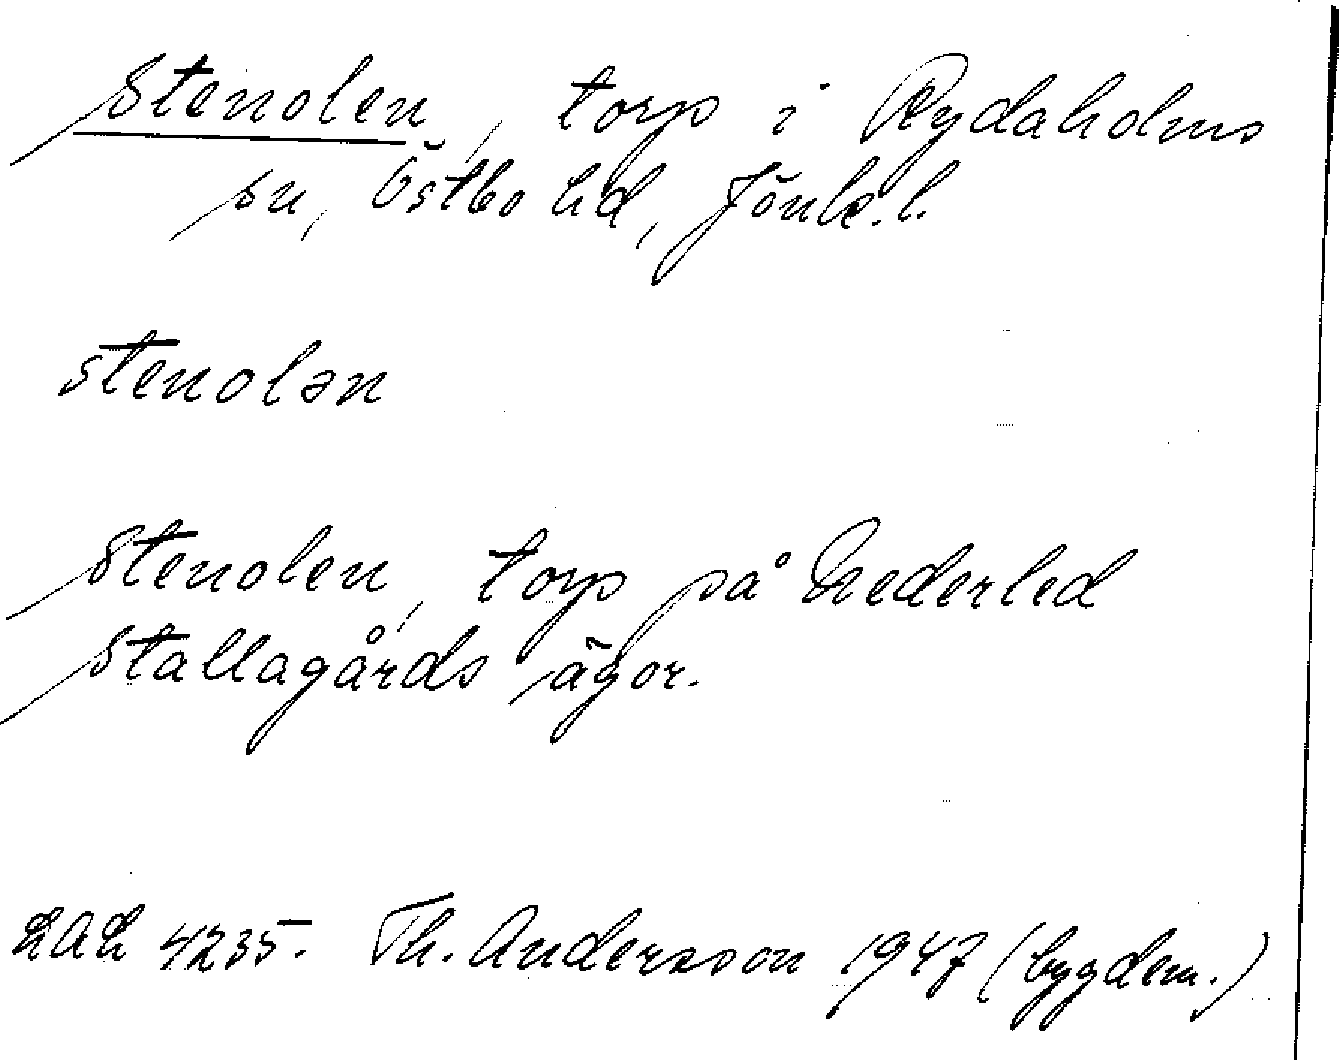 Stenolen, torp i Rydaholms
sn, Östbo hd, Jönk. l.
stenolən
Stenolen, torp på Nederled
Stallagårds ägor.
LAL 4235. Th. Andersson 1947 (bygdem.)